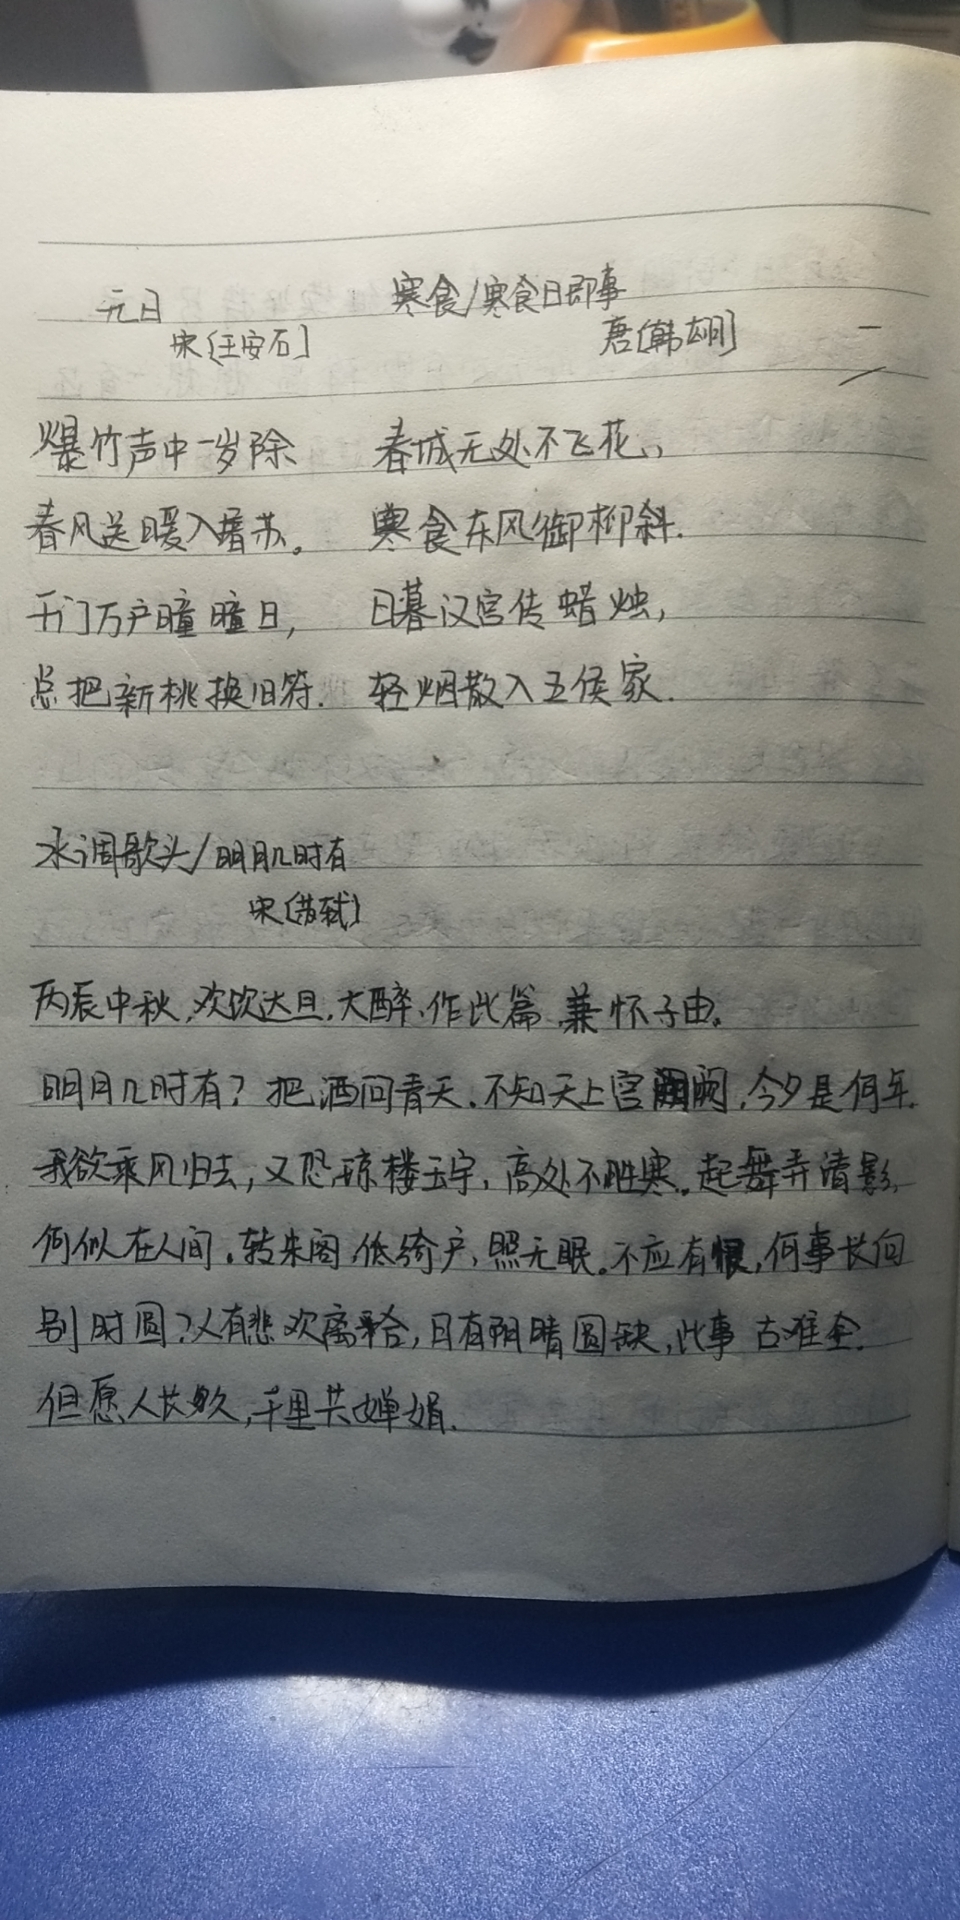 元日
宋[王安石]
爆竹声中一岁除
春风送暖入屠苏。
千门万户瞳瞳日,
总把新桃换旧符.
寒食/寒食日即事
唐[韩翃]
春城无处不飞花,
寒食东风御柳斜.
日暮汉宫传蜡烛,
轻烟散入五侯家.
水调歌头/明月几时有
宋[苏轼]
丙辰中秋,欢饮达旦,大醉,作此篇,兼怀子由。
明月几时有?把酒问青天.不知天上宫阙,今夕是何年.
我欲乘风归去,又恐琼楼玉宇,高处不胜寒。起舞弄清影,
何似在人间.转朱阁,低绮户,照无眠。不应有恨,何事长向
别时圆?人有悲欢离合,月有阴晴圆缺,此事古难全.
但愿人长久,千里共婵娟.